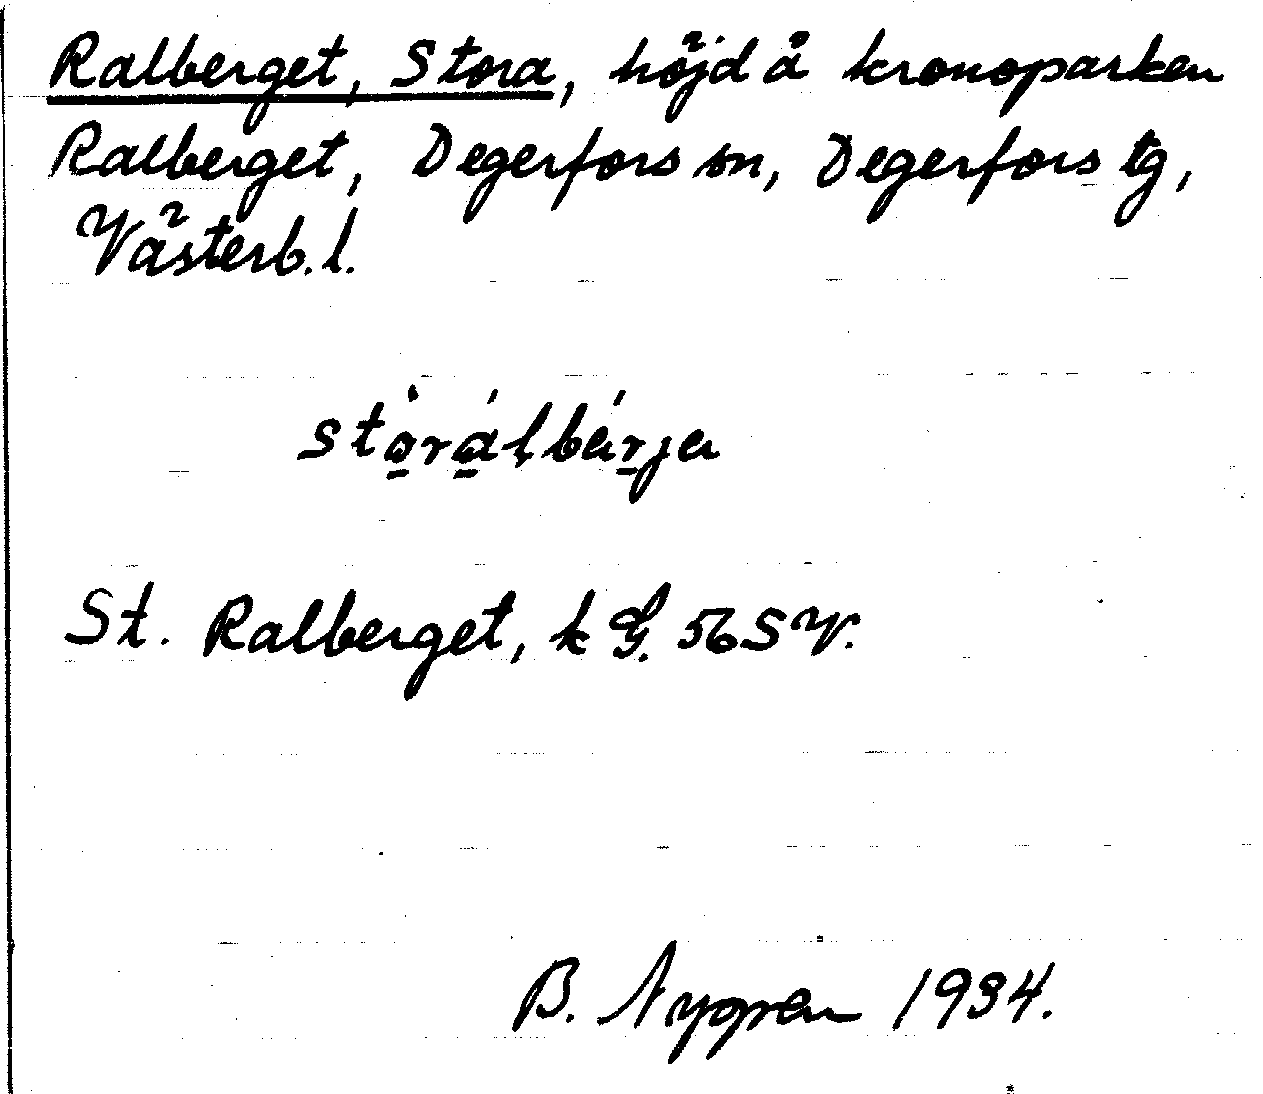 Ralberget, Stora, höjd å kronoparken
Ralberget, Degerfors sn, Degerfors tg,
Västerb. l.
sto̠ra̠lbär̠ja
St. Ralberget, k G. 56 SV.
B. Nygren 1934.